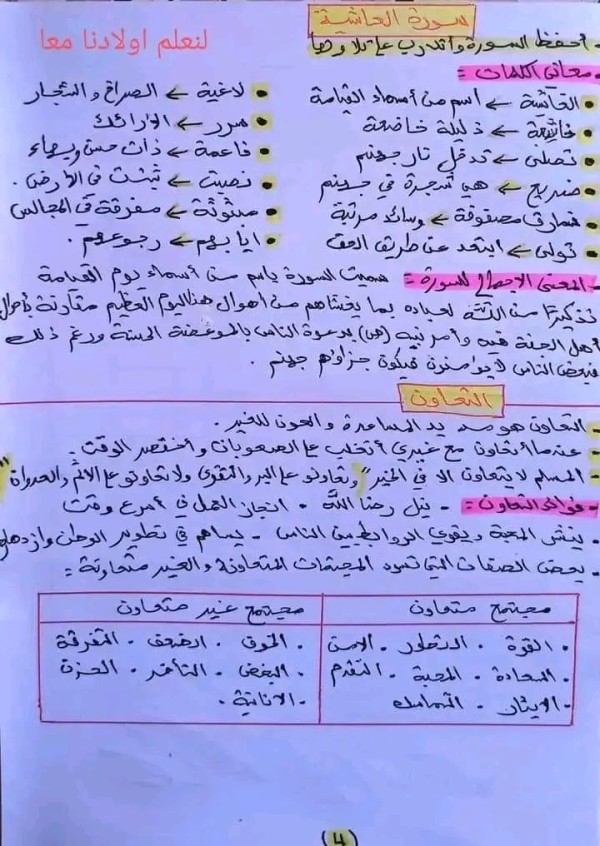 سورة الغاشية
لنعلم اولادنا معا
- أحفظ السورة وأتدرب على تلاوتها
- معاني الكلمات :
• الغاشية ← اسم من أسماء القيامة
• لاغية ← الصراخ والشجار
• خاشعة ← ذليلة خاضعة
• سرر ← الأرائك
• تصلى ← تدخل نار جهنم
• ناعمة ← ذات حسن وبهاء
• ضريع ← هي شجرة في جهنم
• نصبت ← ثبتت في الأرض .
• نمارق مصفوفة ← وسائد مرتبة
• مبثوثة ← مفرقة في المجالس
• تولى ← ابتعد عن طريق الحق
• ايابهم ← رجوعهم .
- المعنى الإجمالي للسورة : سميت السورة باسم من أسماء يوم القيامة
تذكيرا من الله لعباده بما يغشاهم من أهوال هذا اليوم العظيم مقارنة بأحوال
أهل الجنة فيه وأمر نبيه (ص) بدعوة الناس بالموعضة الحسنة ورغم ذلك
فبعض الناس لا يؤمنون فيكون جزاؤهم جهنم .
التعاون
- التعاون هو مد يد المساعدة والعون للغير .
- عندما أتعاون مع غيري أتغلب على الصعوبات وأختصر الوقت .
- المسلم لا يتعاون الا في الخير "وتعاونو على البر والتقوى ولا تعاونو على الاثم والعدوان"
- فوائد التعاون : - نيل رضا الله . انجاز العمل في أسرع وقت
. ينشر المحبة ويقوي الروابط بين الناس - يساهم في تطوير الوطن وازدهاره
- بعض الصفات التي تسود المجتمعات المتعاونة والغير متعاونة :
مجتمع متعاون
مجتمع غير متعاون
. القوة . التطور . الامن
. الخوف . الضعف . التفرقة
. السعادة . المحبة . التقدم
. البغض . التأخر . الحزن
. الايثار . التماسك
. الانانية .
(4)